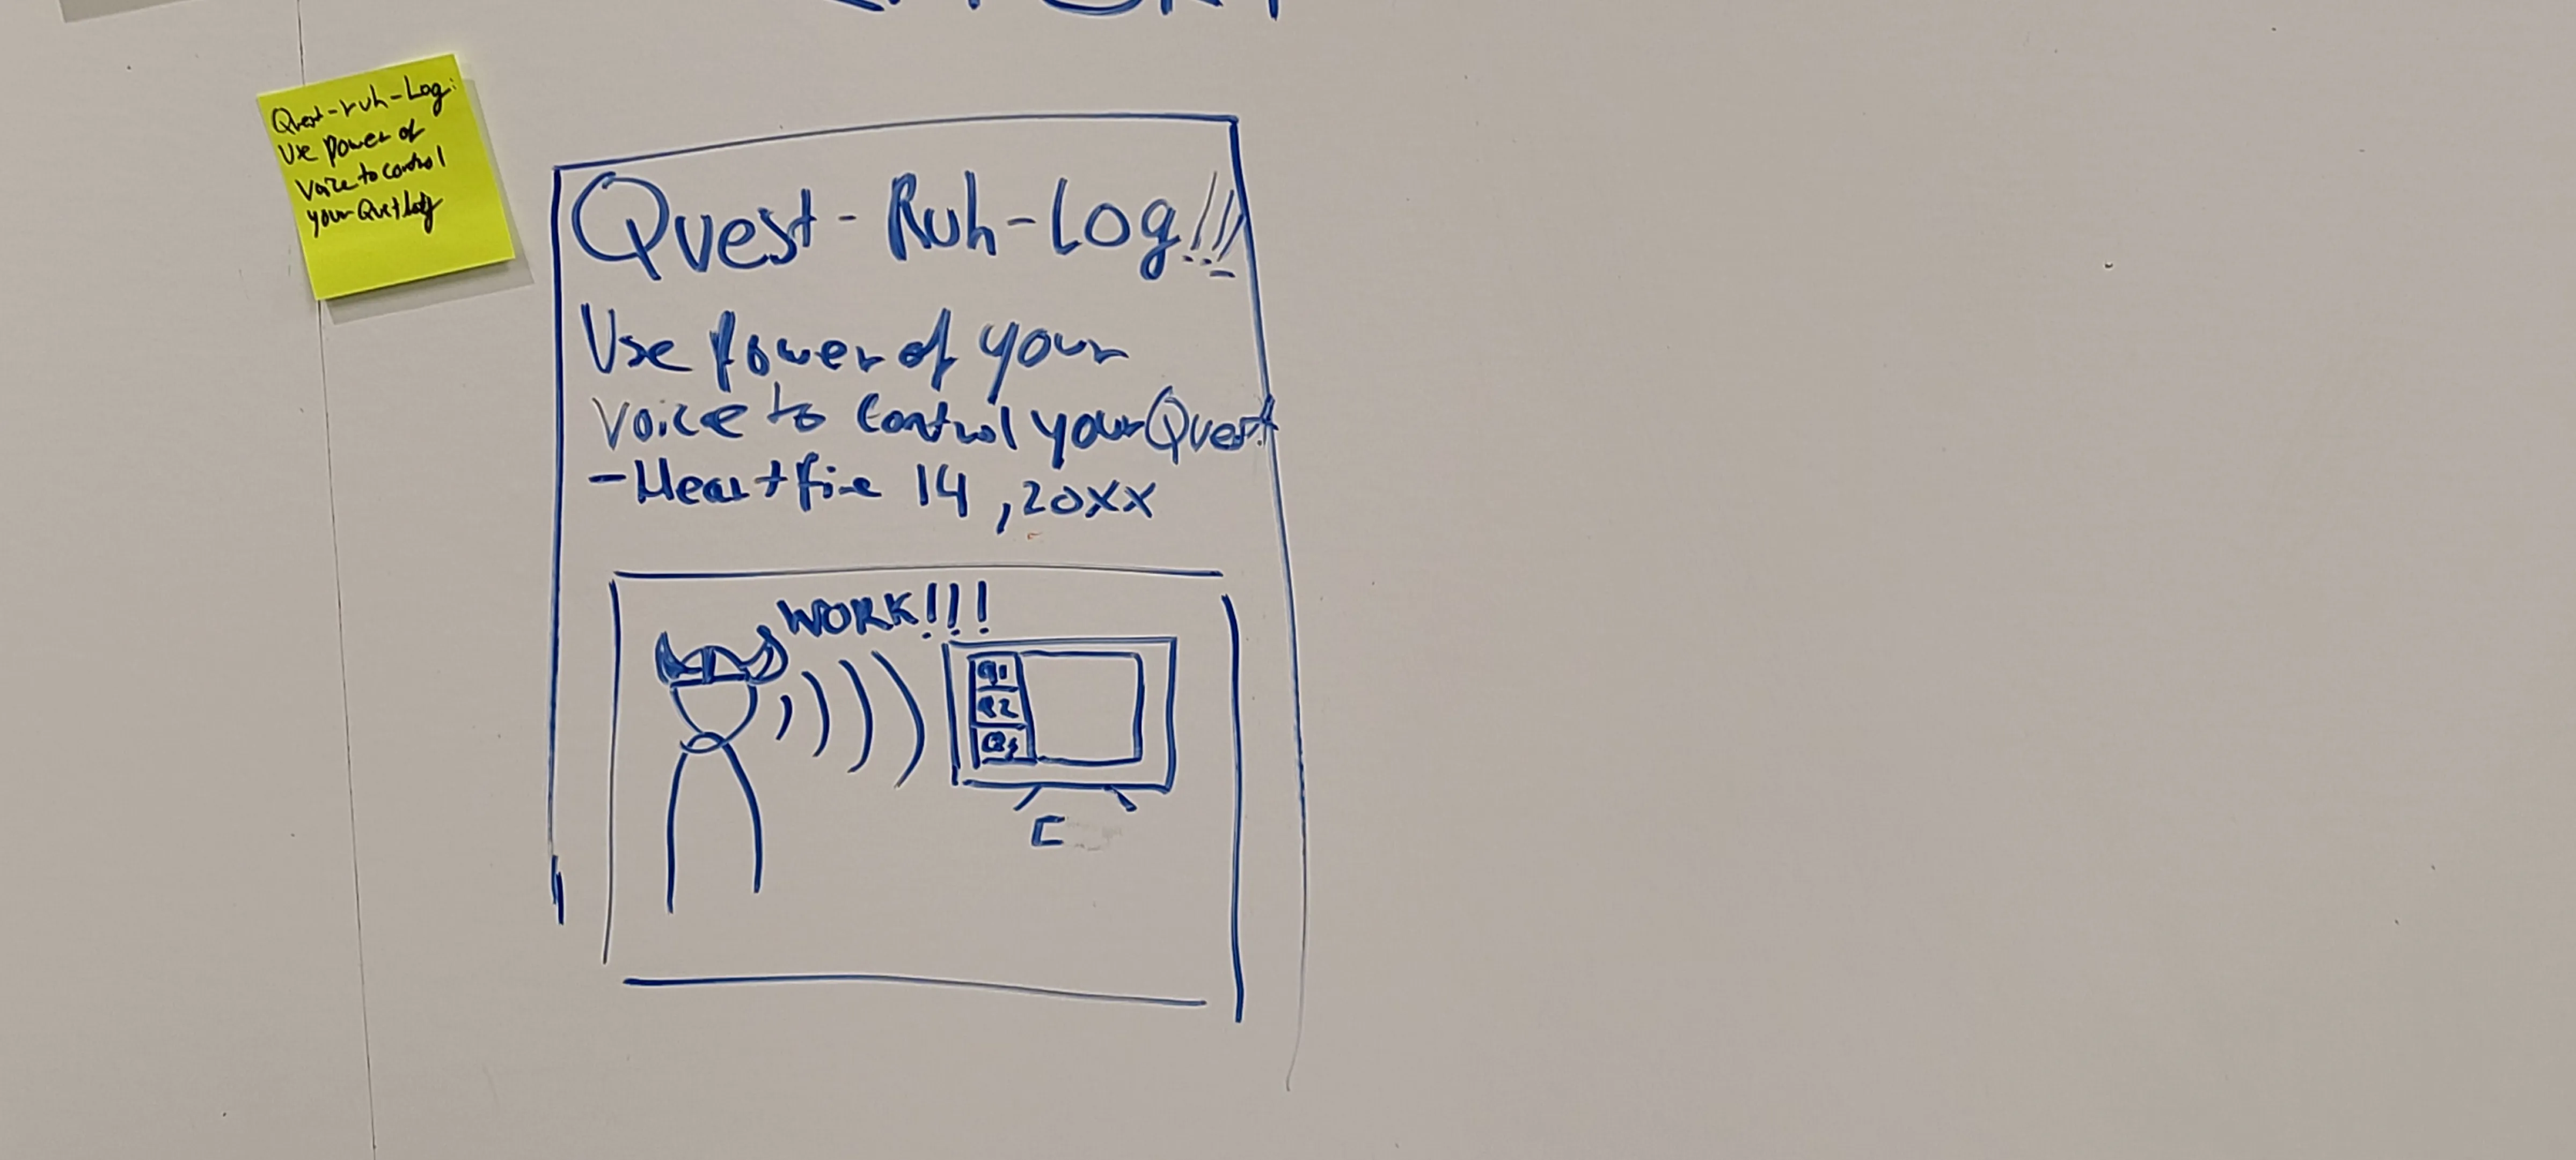 Quest-ruh-Log:
Use power of
voice to control
your Quest log
Quest-Ruh-Log!!!
Use power of your
voice to control your Quest
-Heartfire 14, 20XX
WORK!!!
Q1
Q2
Q3